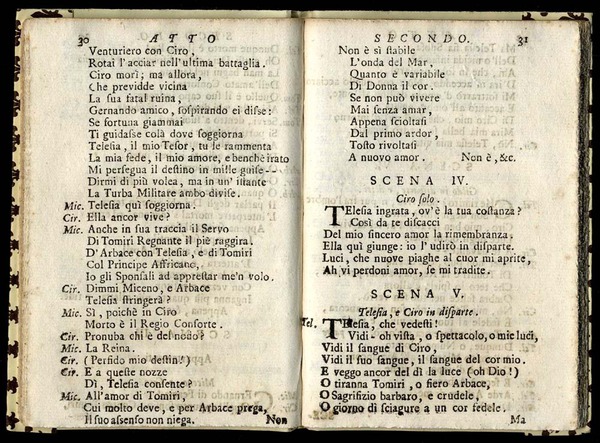 30 ATTO
Venturiero con Ciro,
Rotai l'acciar nell'ultima battaglia.
Ciro morì; ma allora,
Che previdde vicina
La sua fatal ruina,
Gernando amico, sospirando ei disse:
Se fortuna giammai
Ti guidasse colà dove soggiorna
Telesia, il mio Tesor, tu le rammenta
La mia fede, il mio amore, e benchè irato
Mi persegua il destino in mille guise--
Dirmi di più volea, ma in un' istante
La Turba Militare ambo divise.
Mic. Telesia quì soggiorna.
Cir. Ella ancor vive?
Mic. Anche in sua traccia il Servo
Di Tomiri Regnante il piè raggira.
D'Arbace con Telesia, e di Tomiri
Col Principe Affricano,
Io gli Sponsali ad apprestar me'n volo.
Cir. Dimmi Miceno, e Arbace
Telesia stringerà?
Mic. Sì, poichè in Ciro
Morto è il Regio Consorte.
Cir. Pronuba chi è del nodo?
Mic. La Reina.
Cir. (Perfido mio destin!)
Cir. E a queste nozze
Dì, Telesia consente?
Mic. All'amor di Tomiri,
Cui molto deve, e per Arbace prega,
Il suo assenso non niega. Non
SECONDO. 31
Non è sì stabile
L'onda del Mar,
Quanto è variabile
Di Donna il cor.
Se non può vivere
Mai senza amar,
Appena scioltasi
Dal primo ardor,
Tosto rivoltasi
A nuovo amor. Non è, &c.
SCENA IV.
Ciro solo.
TElesia ingrata, ov'è la tua costanza?
Così da te discacci
Del mio sincero amor la rimembranza.
Ella quì giunge: io l'udirò in disparte.
Luci, che nuove piaghe al cuor mi aprite,
Ah vi perdoni amor, se mi tradite.
SCENA V.
Telesia, e Ciro in disparte.
Tel. TElesia, che vedesti!
Vidi- oh vista, o spettacolo, o mie luci,
Vidi il sangue di Ciro,
Vidi il suo sangue, il sangue del cor mio.
E veggo ancor del dì la luce (oh Dio!)
O tiranna Tomiri, o fiero Arbace,
O Sagrifizio barbaro, e crudele,
O giorno di sciagure a un cor fedele.
Ma